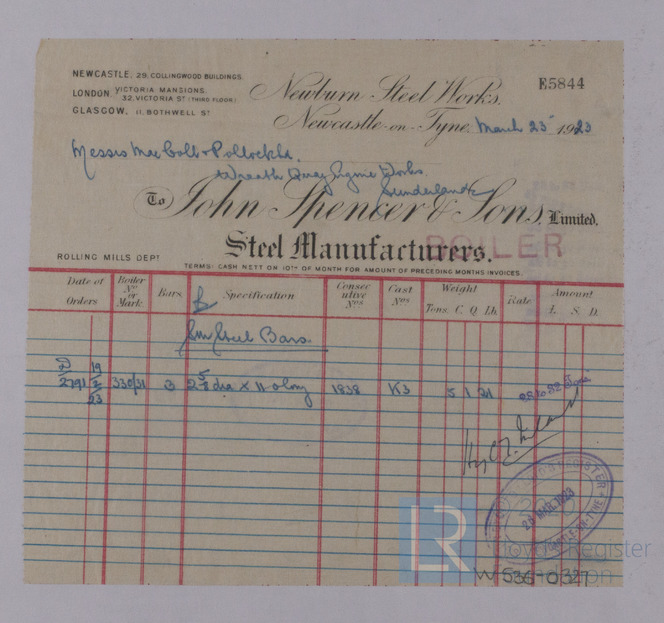 NEWCASTLE, 29, COLLINGWOOD BUILDINGS.
LONDON, VICTORIA MANSIONS, 32, VICTORIA ST (THIRD FLOOR)
GLASGOW, 11, BOTHWELL ST
Newburn Steel Works.
E5844
Newcastle-on-Tyne, March 23 1923
Messrs MacColl & Pollock Ld.
Wreath Quay Engine Works.
Sunderland
To John Spencer & Sons, Limited.
Steel Manufacturers.
BOILER
ROLLING MILLS DEPT
TERMS: CASH NETT ON 10TH OF MONTH FOR AMOUNT OF PRECEDING MONTHS INVOICES.
Date of Orders
Boiler No or Mark.
Bars
Specification
Consecutive Nos
Cast Nos
Weight
Tons. C. Q. Lb.
Rate
Amount
£. S. D.
Steel Bars.
2791 19/2/23 330/31 3 2 5/8 dia x 11-0 long 1838 K3 5 1 21 28 to 32 Tons
REGISTER
26 MAR. 1923
NEWCASTLE-ON-TYNE
LR
Lloyd's Register
Foundation
W536-0327